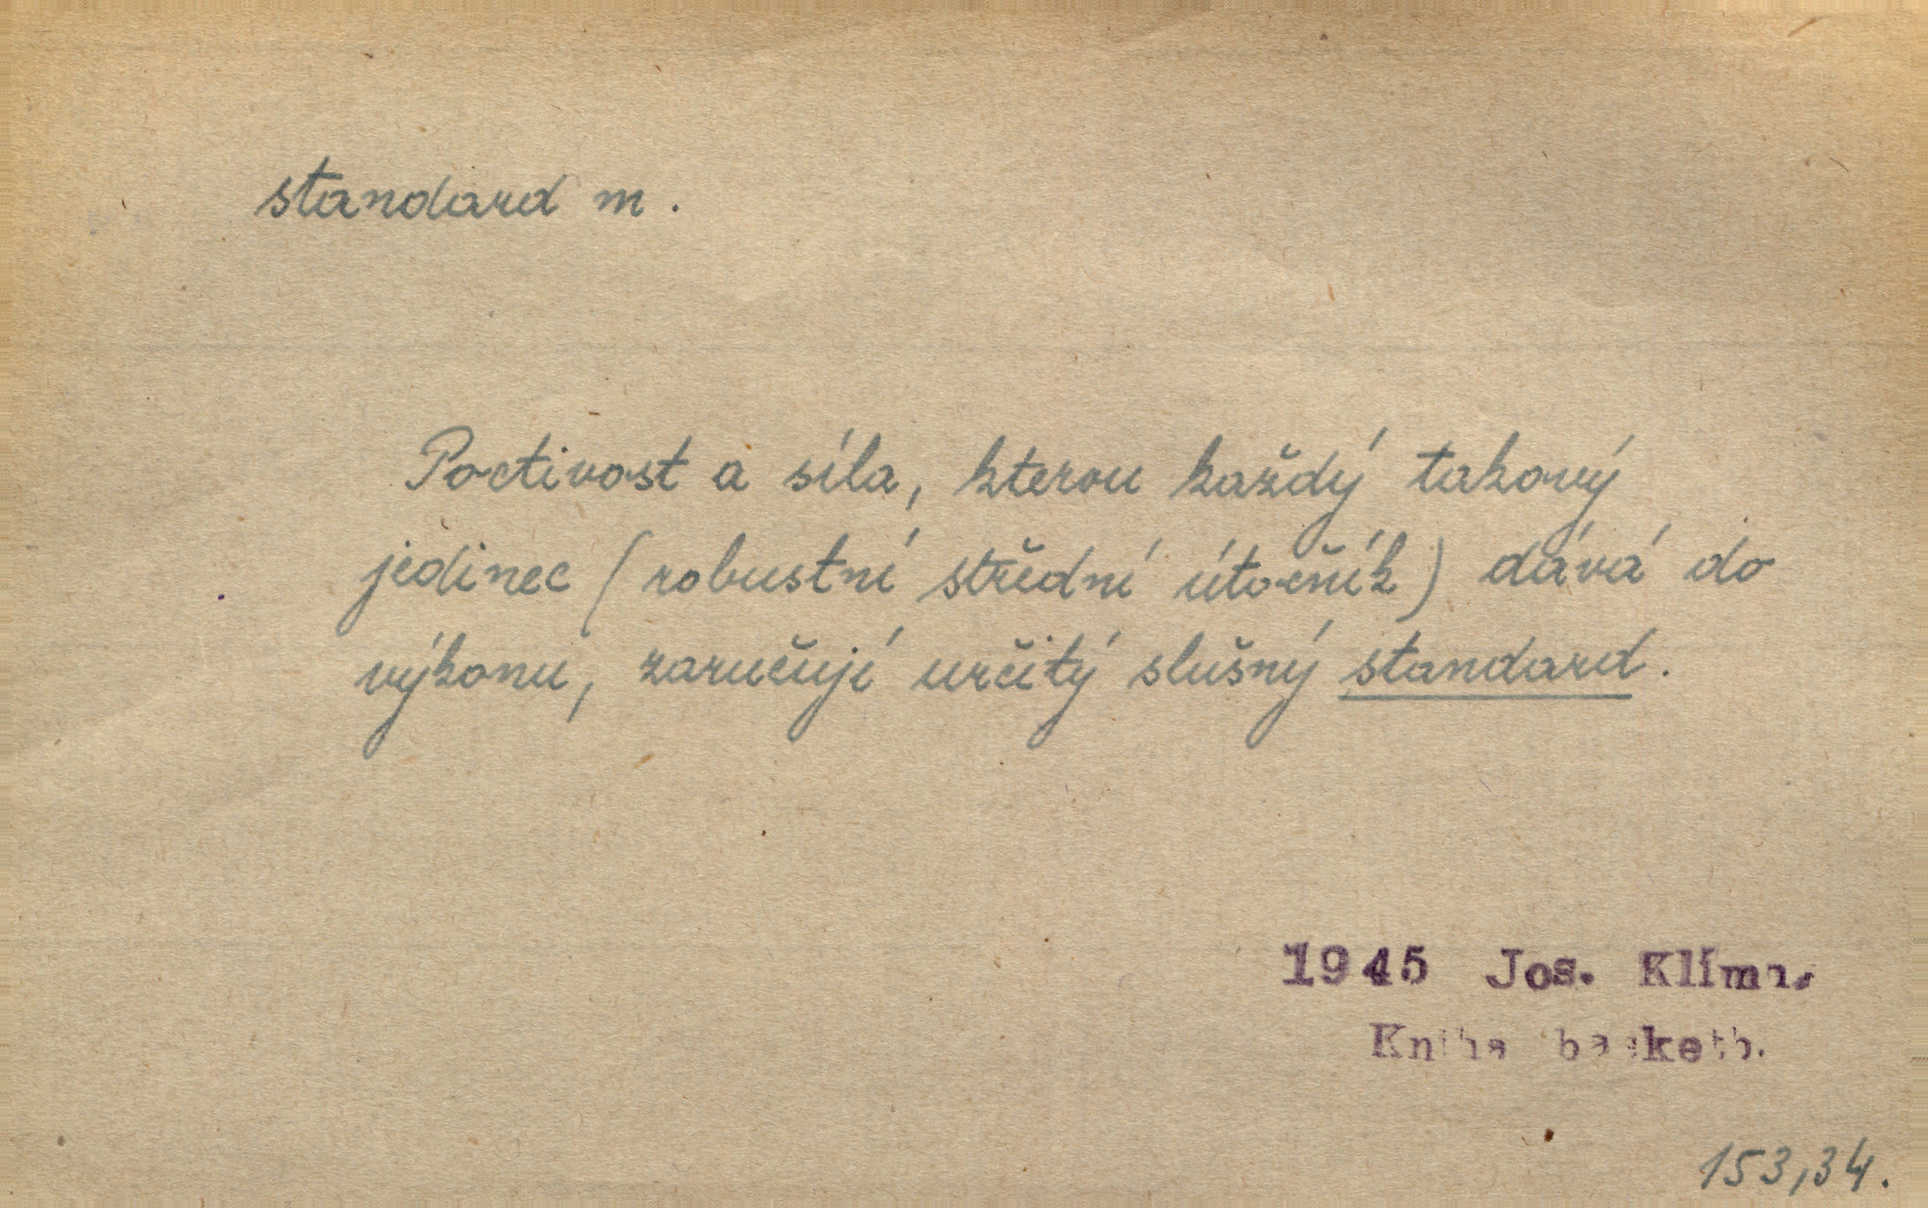 standard m.
Poctivost a síla, kterou každý takový
jedinec (robustní střední útočník) dává do
výkonu, zaručují určitý slušný standard.
1945 Jos. Klíma,
Kniha basketb.
153,34.